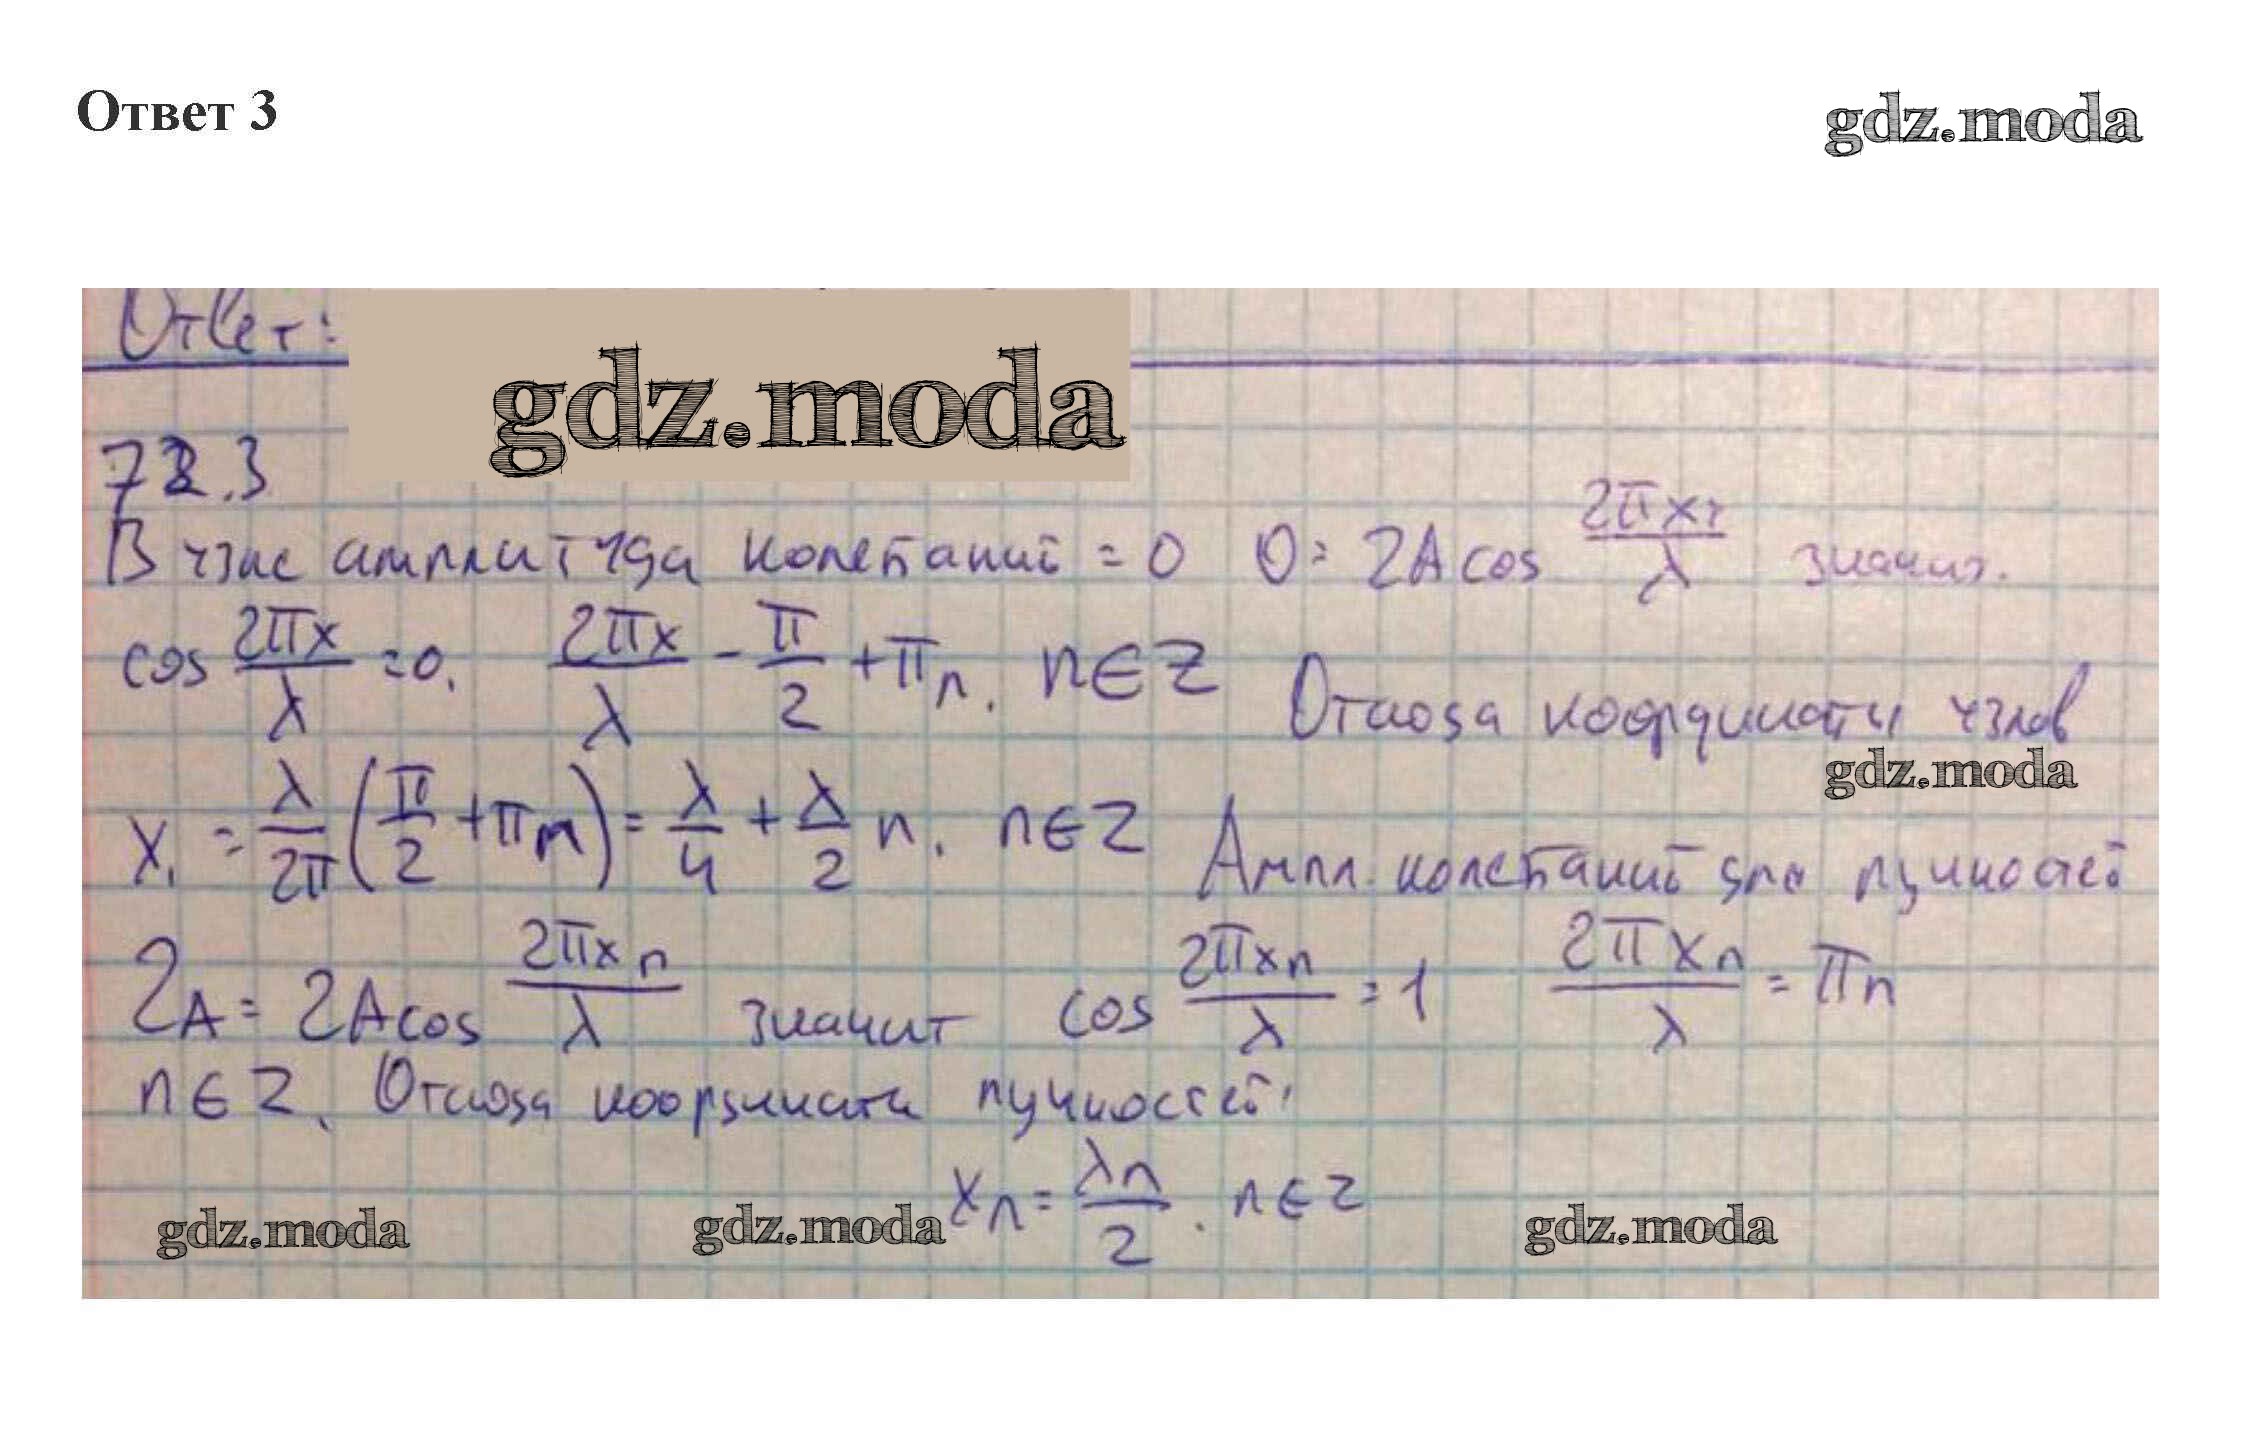 Ответ 3
gdz.moda
Ответ:
gdz.moda
72.3
В узле амплитуда колебаний = 0 0 = 2A cos 2πx₁/λ значит.
cos 2πx/λ = 0. 2πx/λ - π/2 + πn. n∈Z Отсюда координаты узлов
gdz.moda
X₁ = λ/2π (π/2 + πn) = λ/4 + λ/2 n. n∈Z Ампл. колебаний для пучностей
2A = 2A cos 2πxn/λ значит cos 2πxn/λ = 1 2πxn/λ = πn
n∈Z. Отсюда координаты пучностей:
xn = λn/2. n∈Z
gdz.moda gdz.moda gdz.moda